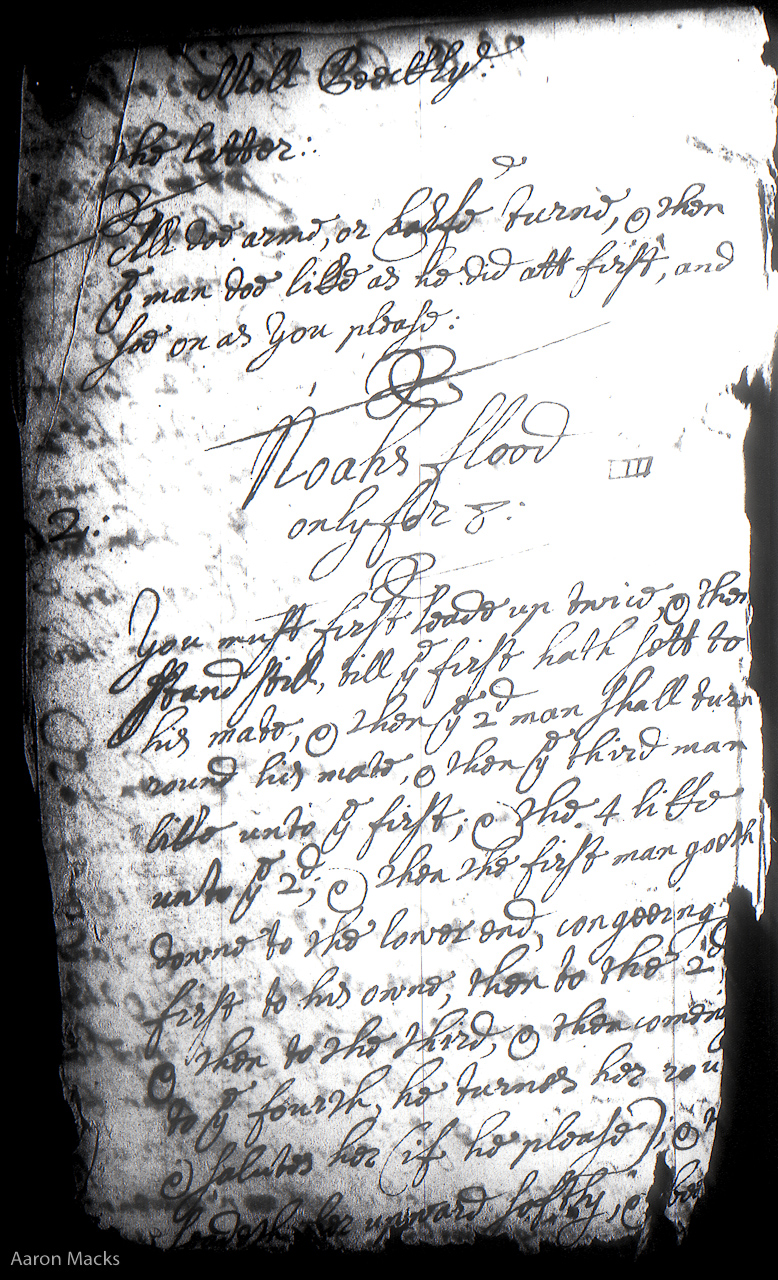 Moll Peeckly.
the latter:.
All doe arme, or halfe turne, & then
ye man doe like as he did att first, and
soe on as you please:
Noahs flood
only for 8:
2:
You must first leade up twice, & then
stand still, till ye first hath sett to
his mate, & then ye 2d man shall turn
round his mate, & then ye third man
like unto ye first; & the 4 likke
unto ye 2d; & then the first man goeth
downe to the lower end, congeeing
first to his owne, then to the 2d,
& then to the third, & then comeing
to ye fourth, he turnes her rou
& salutes her (if he please); & t
leadeth her upward softly, & bo
Aaron Macks